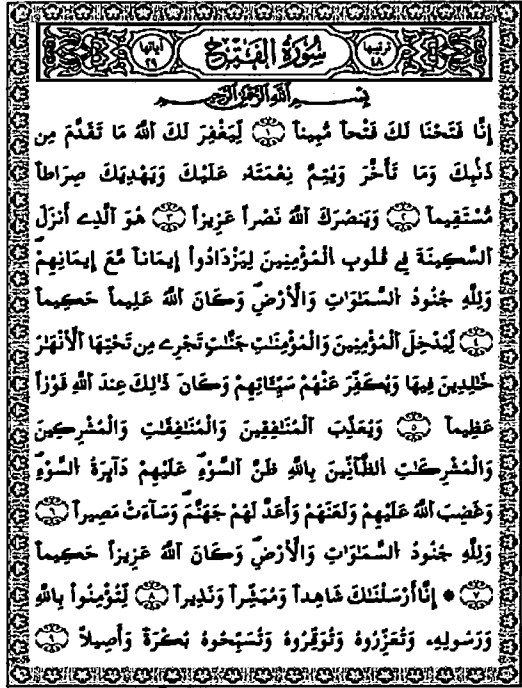 ترتيبها ٤٨ سُورَةُ الفَتْحِ آياتها ٢٩
بِسْمِ اللَّهِ الرَّحْمَٰنِ الرَّحِيمِ
إِنَّا فَتَحْنَا لَكَ فَتْحاً مُّبِيناً ١ لِّيَغْفِرَ لَكَ اَللَّهُ مَا تَقَدَّمَ مِن
ذَنۢبِكَ وَمَا تَأَخَّرَ وَيُتِمَّ نِعْمَتَهُۥ عَلَيْكَ وَيَهْدِيَكَ صِرَٰطاً
مُّسْتَقِيماً ٢ وَيَنصُرَكَ اَللَّهُ نَصْراً عَزِيزاً ٣ هُوَ اَلَّذِے أَنزَلَ
اَلسَّكِينَةَ فِے قُلُوبِ اِلْمُؤْمِنِينَ لِيَزْدَادُوٓاْ إِيمَٰناً مَّعَ إِيمَٰنِهِمْ
وَلِلَّهِ جُنُودُ اُلسَّمَٰوَٰتِ وَالْأَرْضِ وَكَانَ اَللَّهُ عَلِيماً حَكِيماً
٤ لِّيُدْخِلَ اَلْمُؤْمِنِينَ وَالْمُؤْمِنَٰتِ جَنَّٰتٍ تَجْرِے مِن تَحْتِهَا اَلْأَنْهَٰرُ
خَٰلِدِينَ فِيهَا وَيُكَفِّرَ عَنْهُمْ سَيِّـَٔاتِهِمْ وَكَانَ ذَٰلِكَ عِندَ اَللَّهِ فَوْزاً
عَظِيماً ٥ وَيُعَذِّبَ اَلْمُنَٰفِقِينَ وَالْمُنَٰفِقَٰتِ وَالْمُشْرِكِينَ
وَالْمُشْرِكَٰتِ اِلظَّآنِّينَ بِاللَّهِ ظَنَّ اَلسَّوْءِ عَلَيْهِمْ دَآئِرَةُ اُلسَّوْءِ
وَغَضِبَ اَللَّهُ عَلَيْهِمْ وَلَعَنَهُمْ وَأَعَدَّ لَهُمْ جَهَنَّمَ وَسَآءَتْ مَصِيراً ٦
وَلِلَّهِ جُنُودُ اُلسَّمَٰوَٰتِ وَالْأَرْضِ وَكَانَ اَللَّهُ عَزِيزاً حَكِيماً
٧ * إِنَّآ أَرْسَلْنَٰكَ شَٰهِداً وَمُبَشِّراً وَنَذِيراً ٨ لِّتُؤْمِنُواْ بِاللَّهِ
وَرَسُولِهِۦ وَتُعَزِّرُوهُ وَتُوَقِّرُوهُ وَتُسَبِّحُوهُ بُكْرَةً وَأَصِيلاً ٩